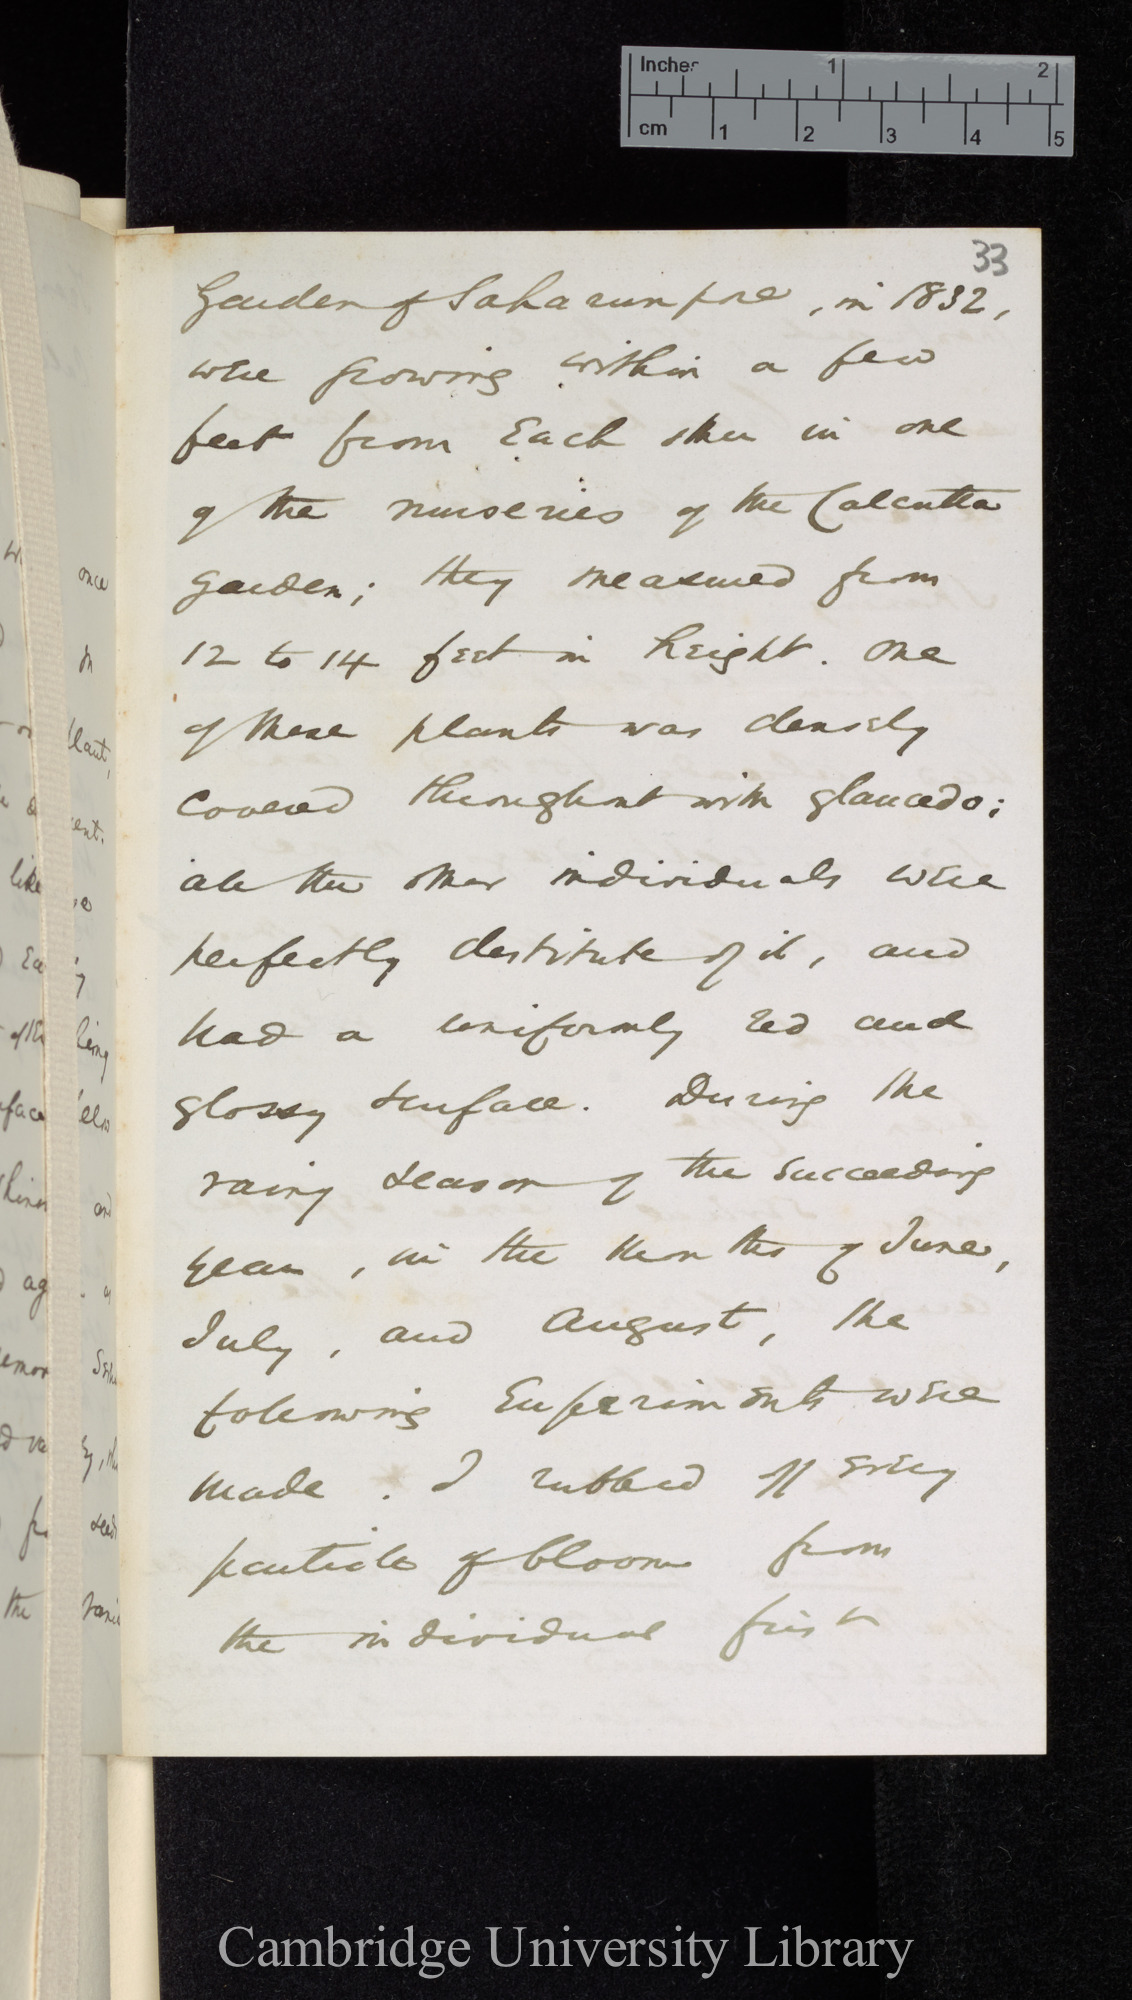 Inches 1 2
cm 1 2 3 4 5
33
Garden of Saharunpore, in 1832,
were growing within a few
feet from Each other in one
of the nurseries of the Calcutta
Garden; they measured from
12 to 14 feet in height. One
of these plants was densely
covered throughout with glaucedo;
all the other individuals were
perfectly destitute of it, and
had a uniformly red and
glossy surface. During the
rainy season of the succeeding
year, in the months of June,
July, and August, the
following Experiments were
made. I rubbed off every
particle of bloom from
the individual first
once
on
plant,
like
the
Cambridge University Library